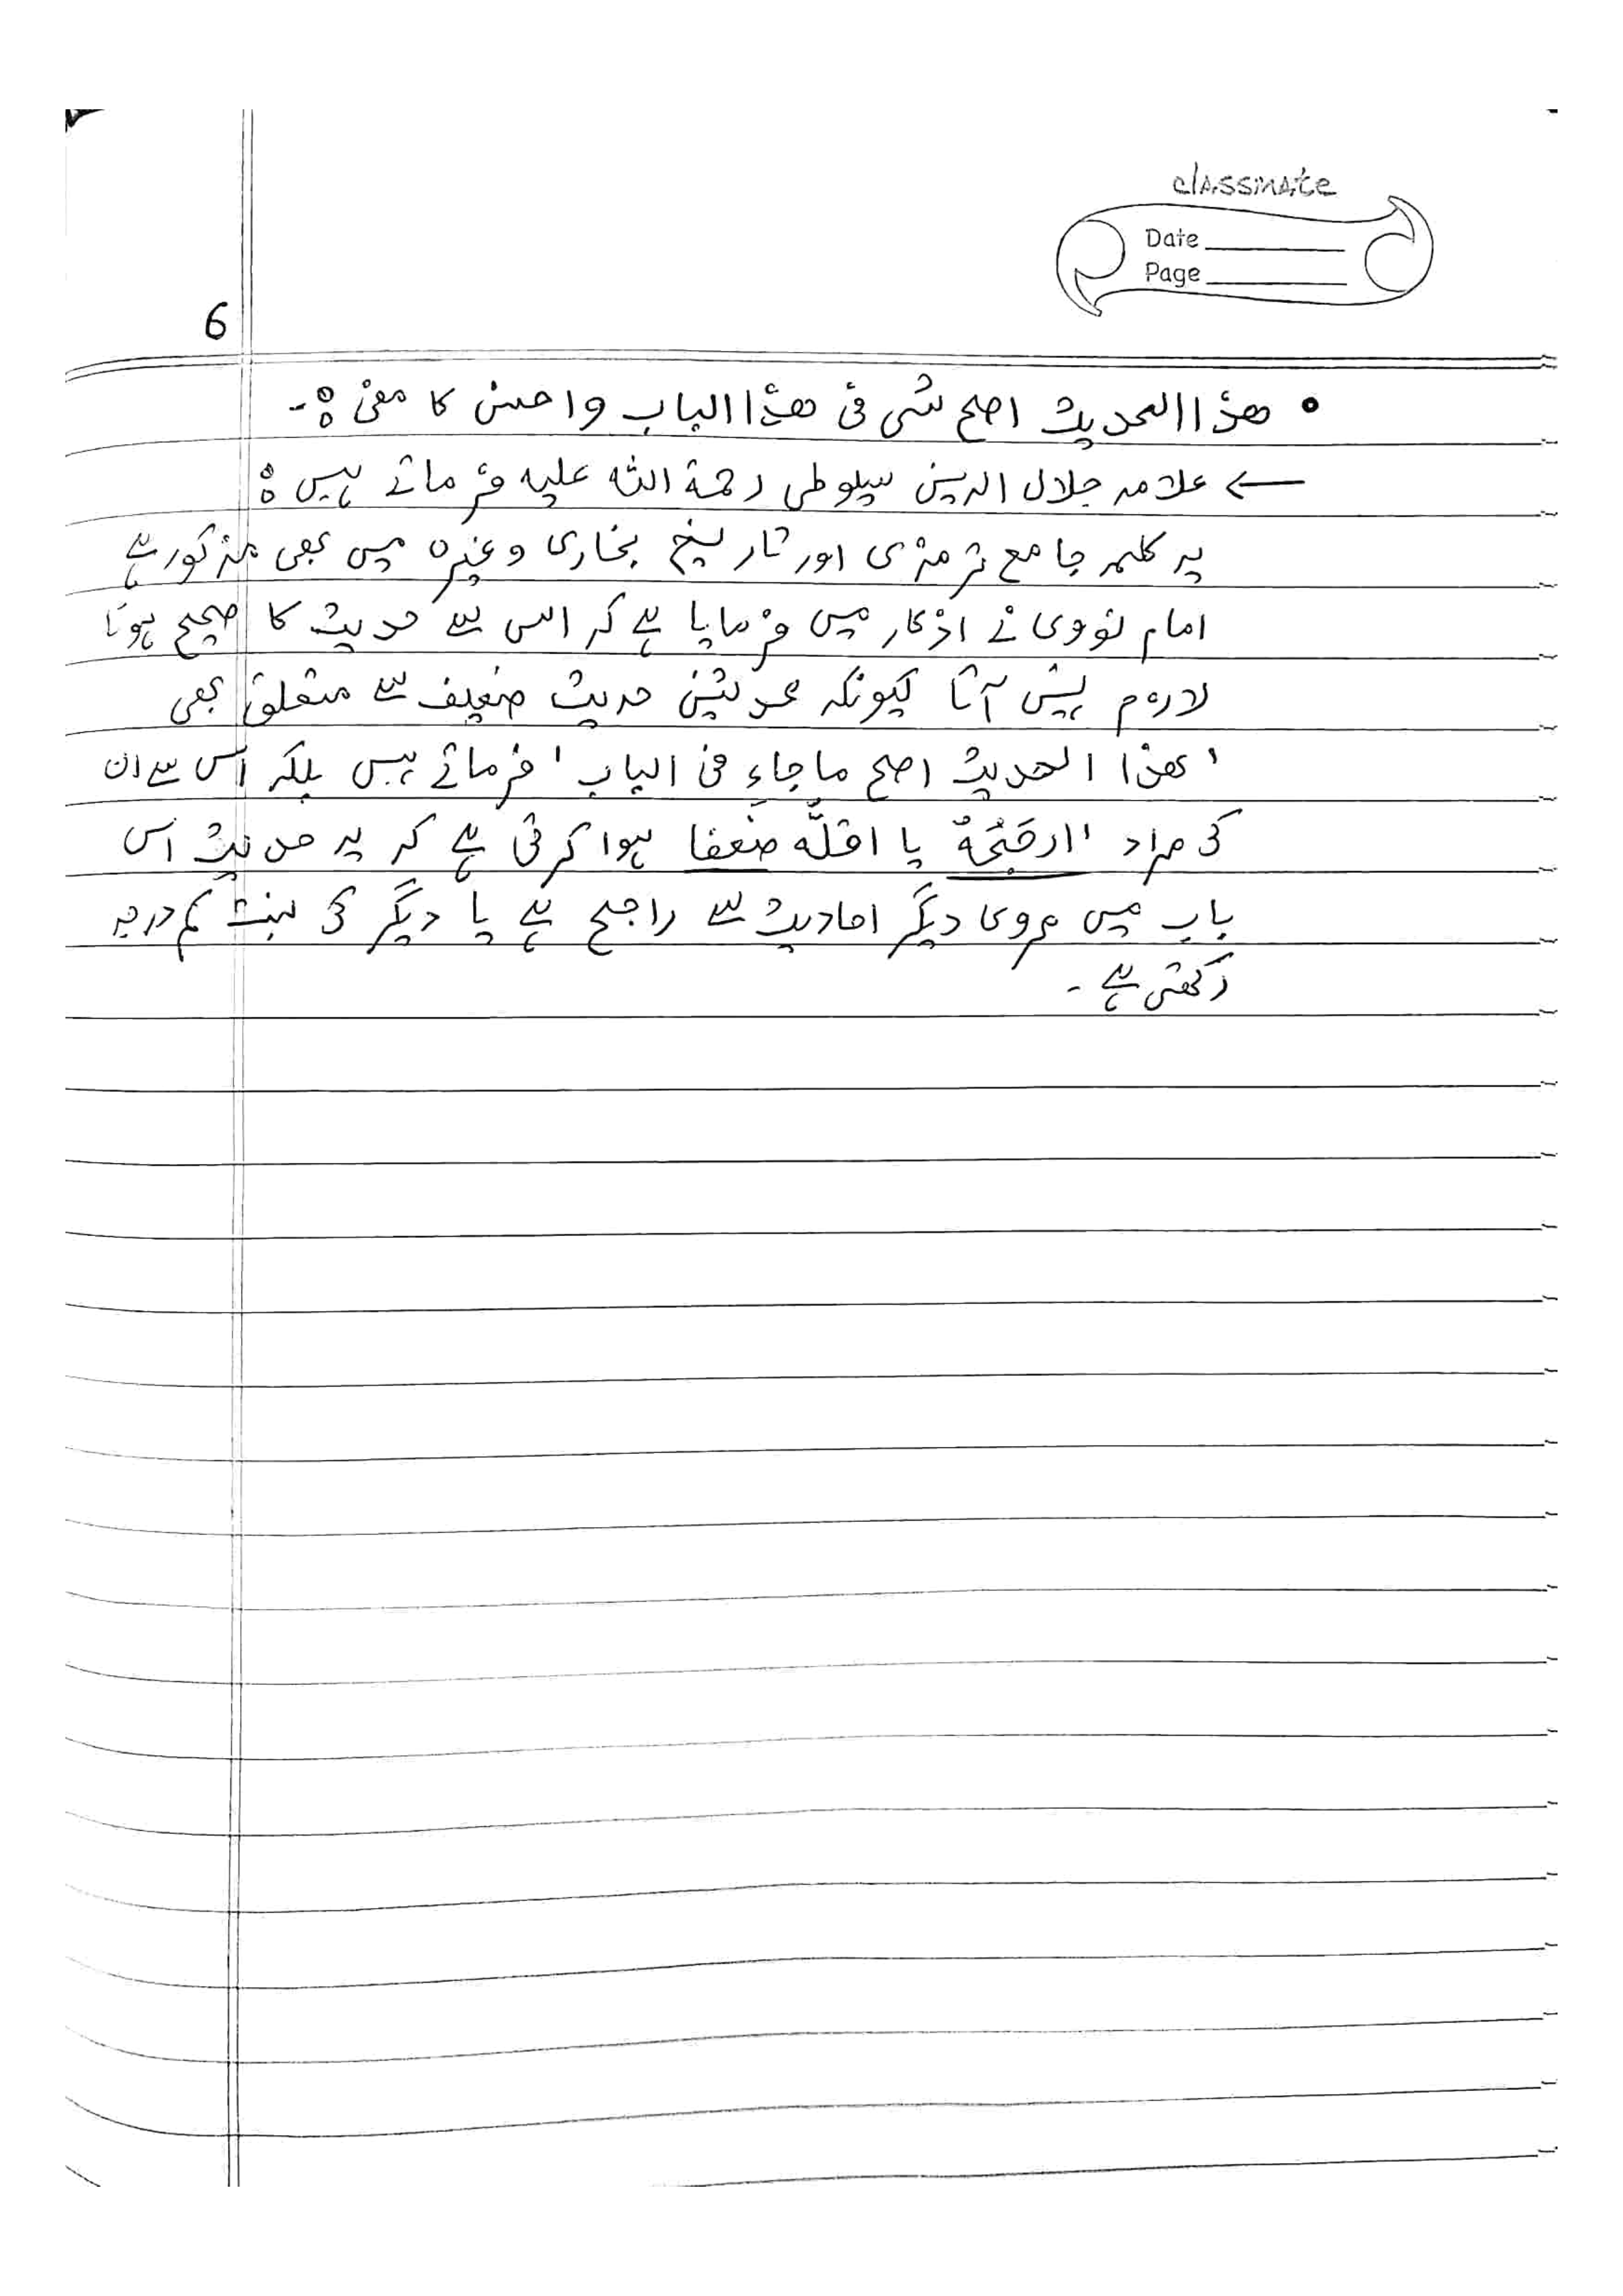 classmate
Date
Page
6
• ھذا الحدیث اصح شی فی ھذا الباب واحسن کا معنی :-
← علامہ جلال الدین سیوطی رحمۃ اللہ علیہ فرماتے ہیں :
یہ کلمہ جامع ترمذی اور تاریخ بخاری وغیرہ میں بھی مذکور ہے
امام نووی نے اذکار میں فرمایا ہے کہ اس سے حدیث کا صحیح ہونا
لازم نہیں آتا کیونکہ محدثین حدیث ضعیف سے متعلق بھی
' ھذا الحدیث اصح ماجاء فی الباب ' فرماتے ہیں بلکہ اس سے ان
کی مراد ' ارجَحُہٗ یا اقلّہ ضعفا ہوا کرتی ہے کہ یہ حدیث اس
باب میں مروی دیگر احادیث سے راجح ہے یا دیگر کی نسبت کم درجہ
رکھتی ہے -